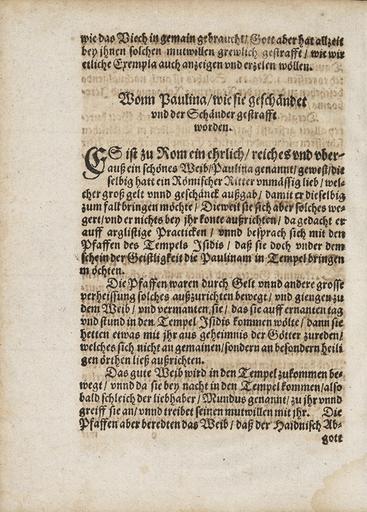 wie das Viech in gemain gebraucht/ Gott aber hat allzeit
bey jhnen solchen mutwillen grewlich gestrafft / wie wir
etliche Exempla auch anzeigen vnd erzelen wöllen.
Vonn Paulina/ wie sie geschändet
vnd der Schänder gestrafft
worden.
ES ist zu Rom ein ehrlich/ reiches vnd vber-
auß ein schönes Weib/ Paulina genannt/ gewest/ die
selbig hatt ein Römischer Ritter vnmässig lieb/ wel-
cher groß gelt vnnd geschänck außgab/ damit er dieselbig
zum fall bringen möchte/ Dieweil sie sich aber solches we-
gert/ vnd er nichts bey jhr konte außrichten/ da gedacht er
auff arglistige Practicken / vnnd besprach sich mit den
Pfaffen des Tempels Isidis / daß sie doch vnder dem
schein der Geistligkeit die Paulinam in Tempel bringen
möchten.
Die Pfaffen waren durch Gelt vnnd andere grosse
verheissung solches außzurichten bewegt/ vnd giengen zu
dem Weib / vnd vermanten sie/ das sie auff ernanten tag
vnd stund in den Tempel Isidis kommen wölte/ dann sie
hetten etwas mit jhr aus geheimnis der Götter zureden/
welches sich nicht an gemainen/ sondern an besondern heili
gen örthen ließ außrichten.
Das gute Weib wird in den Tempel zukommen be-
wegt / vnnd da sie bey nacht in den Tempel kommen/ also
bald schleich der liebhaber/ Mundus genannt/ zu jhr vnnd
greiff sie an/ vnnd treibet seinen mutwillen mit jhr. Die
Pfaffen aber beredten das Weib/ daß der Haidnisch Ab-
gott